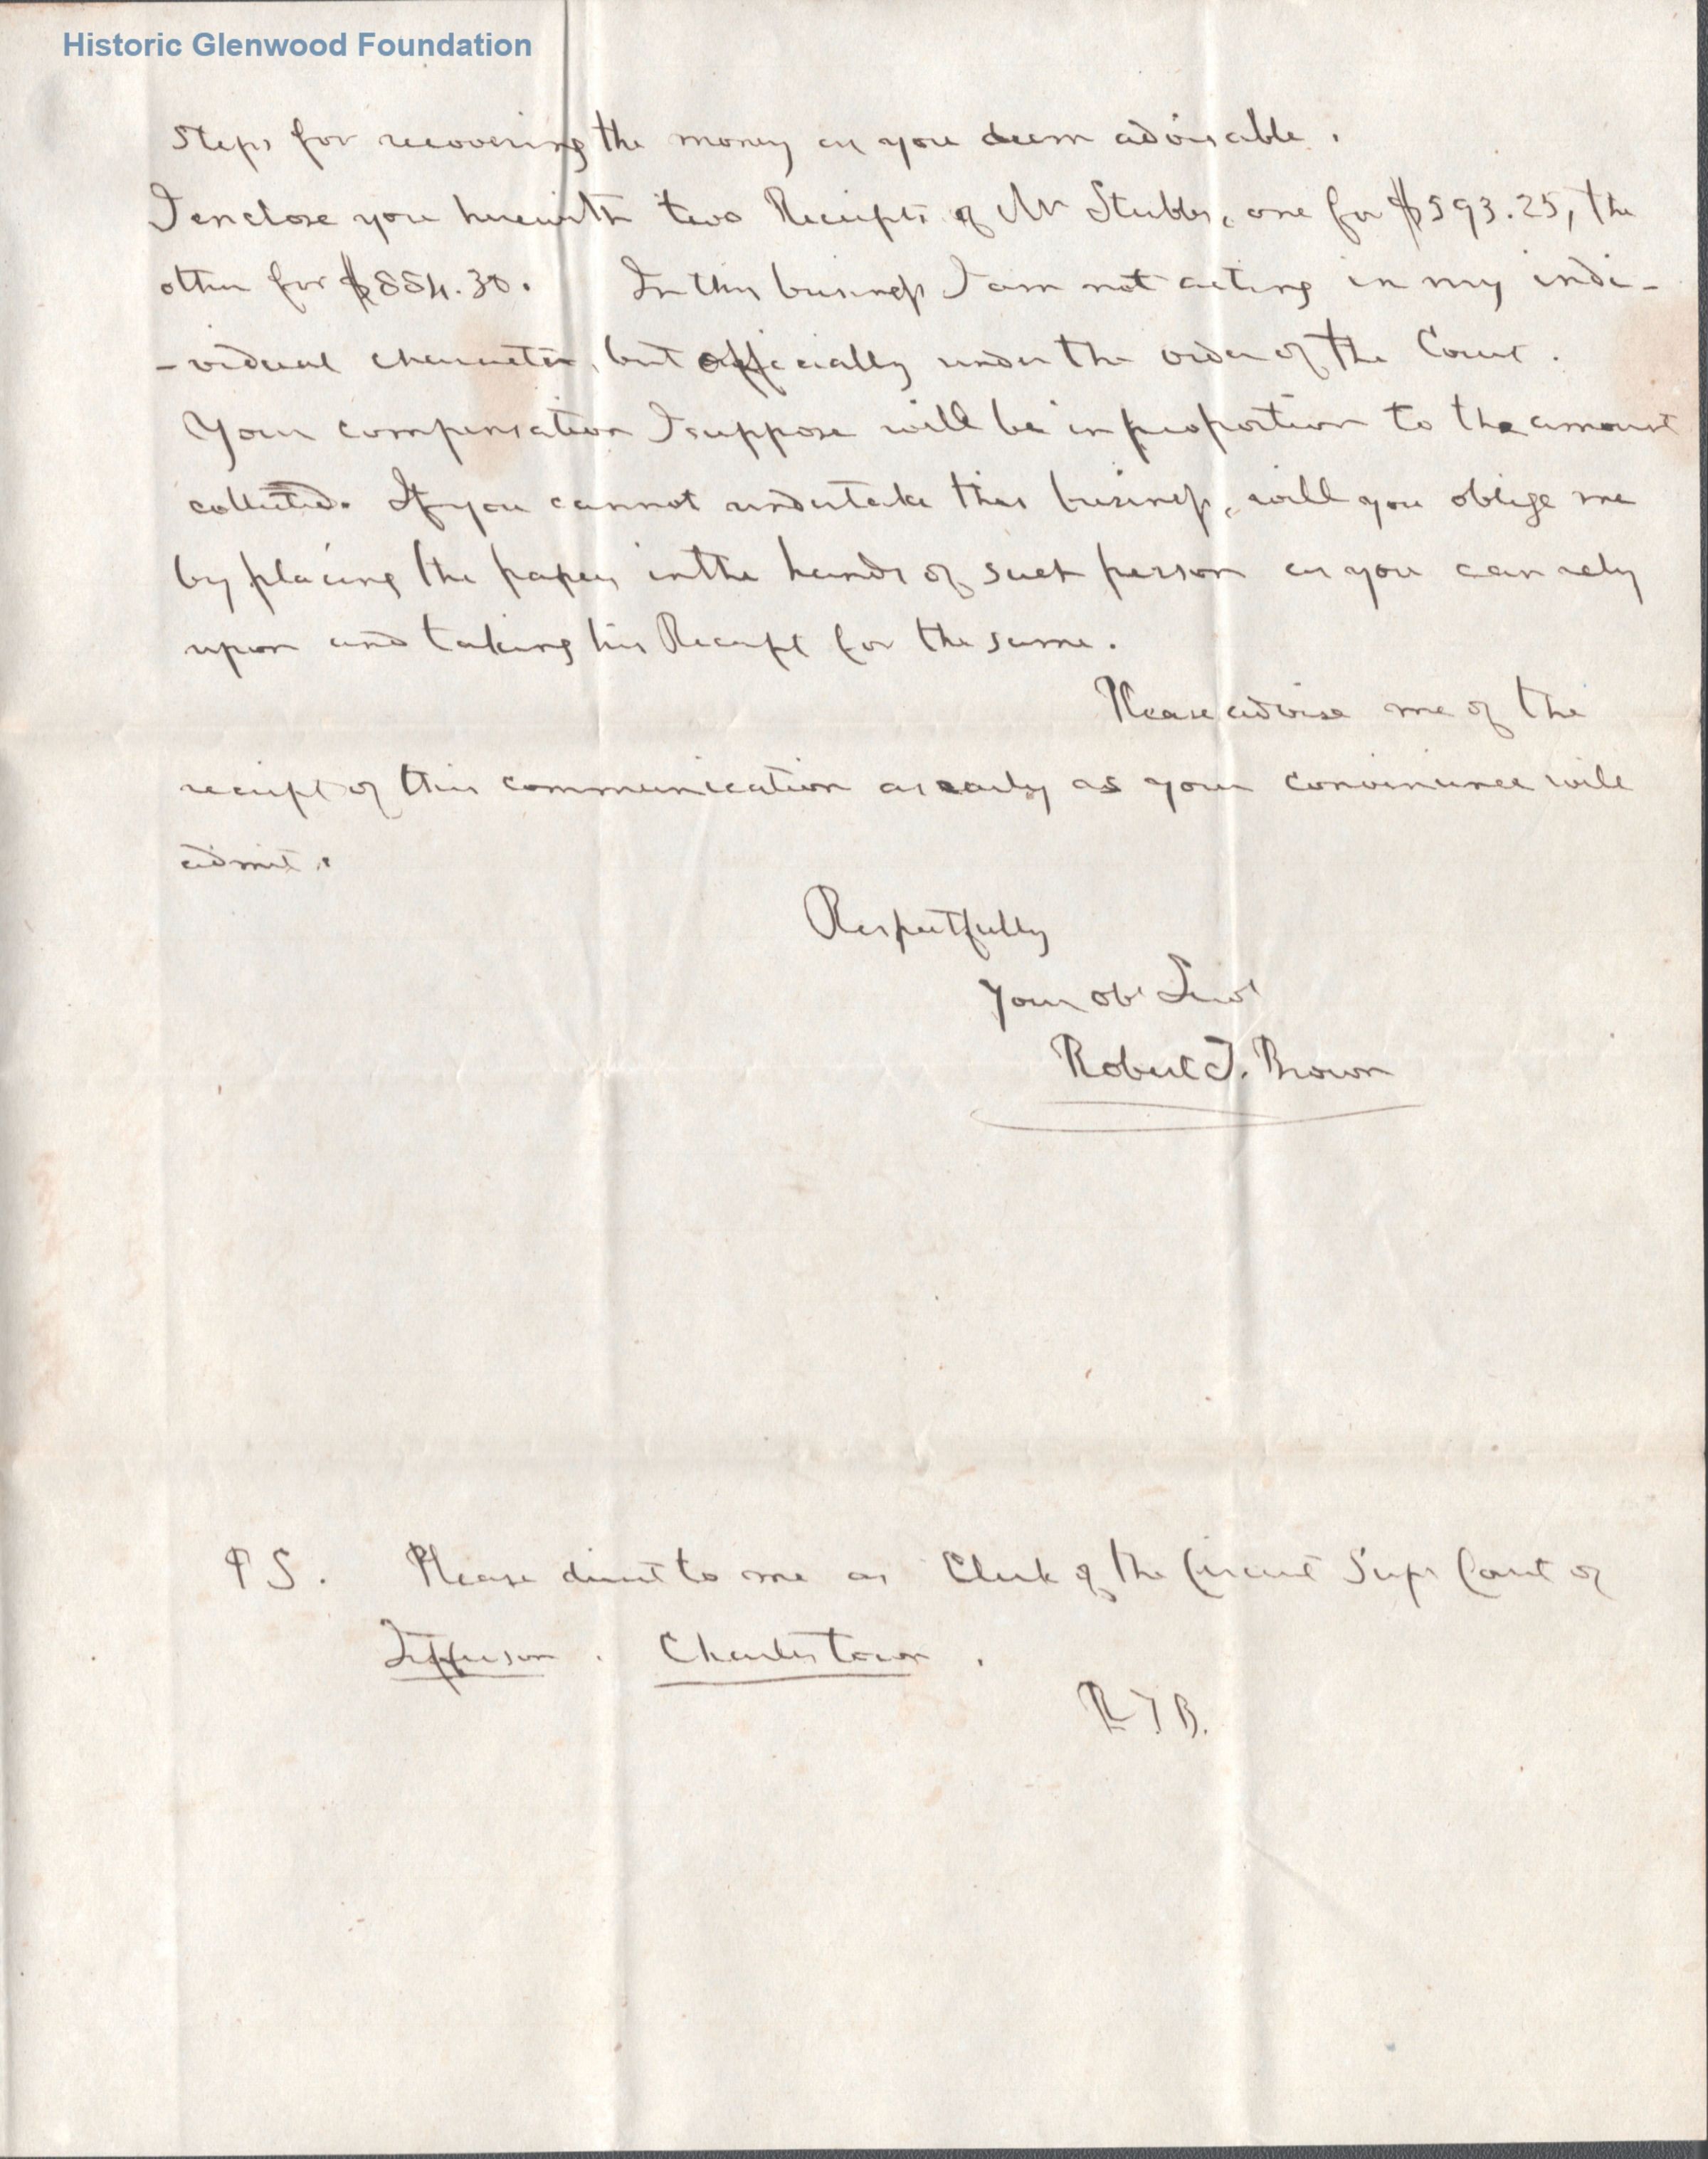 Historic Glenwood Foundation
Steps for recovering the money as you deem advisable.
I enclose you herewith two Receipts of Mr Stubbs, one for $593.25, the
other for $884.30. In this business I am not acting in my indi-
-vidual character, but officially under the order of the Court.
Your compensation I suppose will be in proportion to the amount
collected. If you cannot undertake this business, will you oblige me
by placing the papers in the hands of such person as you can rely
upon and taking his Receipt for the same.
Please advise me of the
receipt of this communication as early as your convenience will
admit.
Respectfully
Your obt Servt
Robert T. Brown
P S. Please direct to me as Clerk of the Circuit Supr Court of
Jefferson. Charlestown.
R T B.